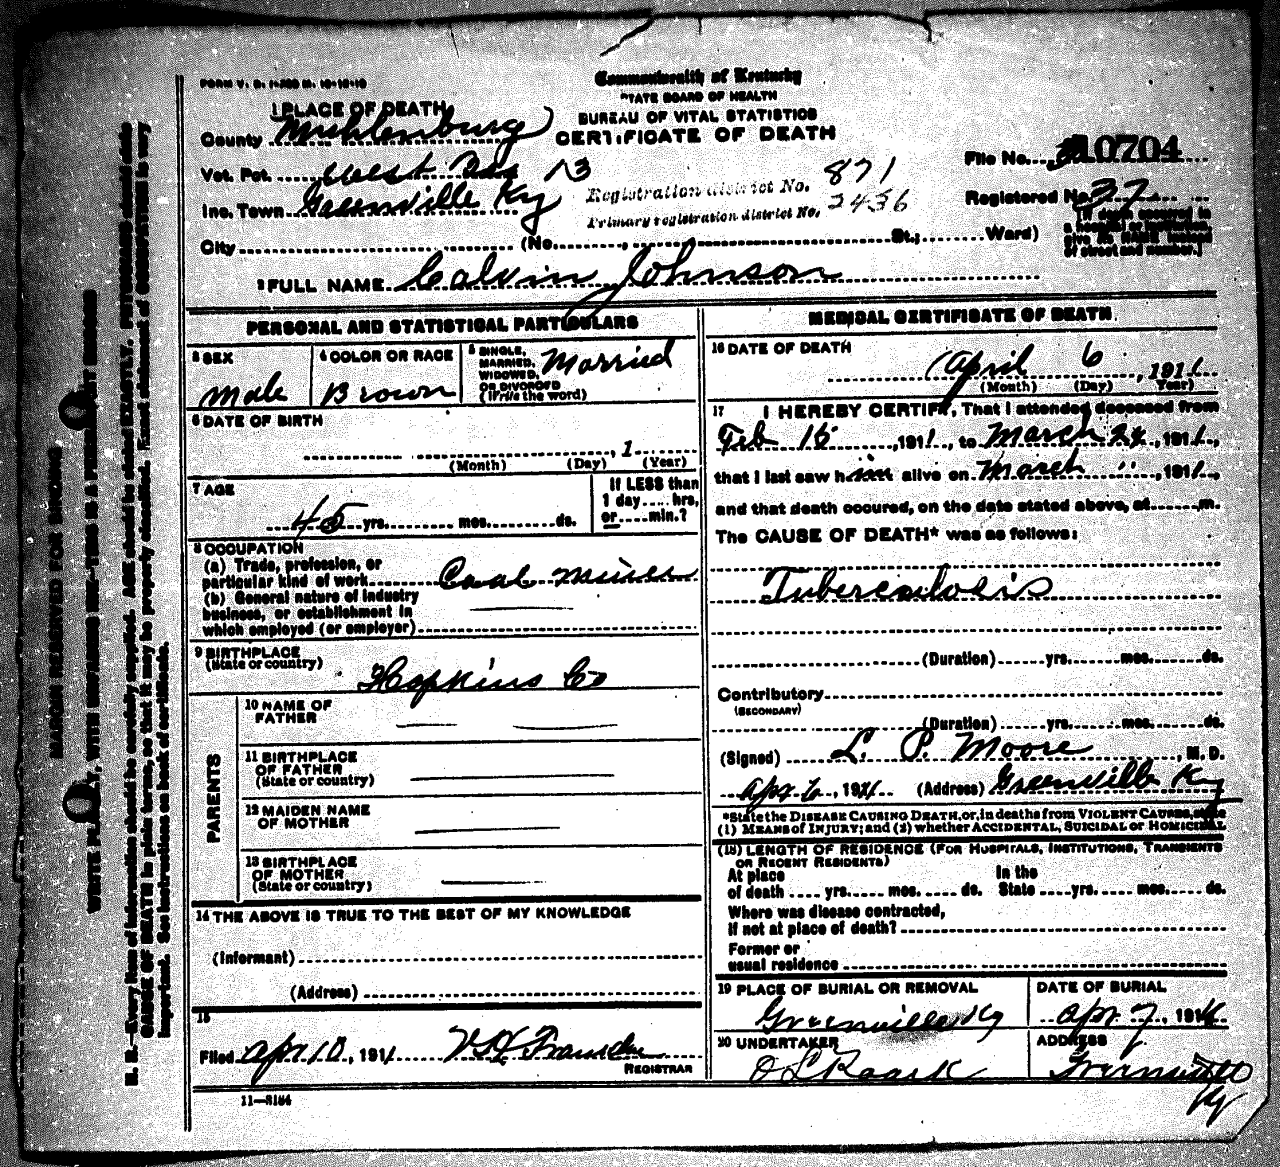 FORM V. S.
Commonwealth of Kentucky
STATE BOARD OF HEALTH
BUREAU OF VITAL STATISTICS
CERTIFICATE OF DEATH
1 PLACE OF DEATH
County Muhlenburg
Vot. Pct. West 13
Inc. Town Greenville Ky
City (No. , St.; Ward)
Registration district No. 871
Primary registration district No. 2436
File No. 10704
Registered No. 37
[If death occurred in
a hospital or institution,
give its NAME instead
of street and number.]
2 FULL NAME Calvin Johnson
PERSONAL AND STATISTICAL PARTICULARS
3 SEX
Male
4 COLOR OR RACE
Brown
5 SINGLE,
MARRIED,
WIDOWED,
OR DIVORCED
(Write the word)
Married
6 DATE OF BIRTH
, 1
(Month) (Day) (Year)
7 AGE
45 yrs. mos. ds.
If LESS than
1 day.... hrs,
or.....min.?
8 OCCUPATION
(a) Trade, profession, or
particular kind of work Coal Miner
(b) General nature of industry
business, or establishment in
which employed (or employer)
9 BIRTHPLACE
(State or country)
Hopkins Co
PARENTS
10 NAME OF
FATHER
11 BIRTHPLACE
OF FATHER
(State or country)
12 MAIDEN NAME
OF MOTHER
13 BIRTHPLACE
OF MOTHER
(State or country)
14 THE ABOVE IS TRUE TO THE BEST OF MY KNOWLEDGE
(Informant)
(Address)
15
Filed Apr 10, 1911
REGISTRAR
11-3184
MEDICAL CERTIFICATE OF DEATH.
16 DATE OF DEATH
April 6, 1911
(Month) (Day) Year)
17 I HEREBY CERTIFY, That I attended deceased from
Feb 15, 1911, to March 24, 1911,
that I last saw him alive on March ", 1911,
and that death occured, on the date stated above, at......m.
The CAUSE OF DEATH* was as follows:
Tuberculosis
(Duration) yrs. mos. ds.
Contributory
(SECONDARY)
(Duration) yrs. mos. ds.
(Signed) L. P. Moore, M. D.
Apr 6, 1911 (Address) Greenville Ky
*State the DISEASE CAUSING DEATH, or, in deaths from VIOLENT CAUSES, state
(1) MEANS of INJURY; and (2) whether ACCIDENTAL, SUICIDAL or HOMICIDAL
(18) LENGTH OF RESIDENCE (FOR HOSPITALS, INSTITUTIONS, TRANSIENTS
OR RECENT RESIDENTS)
At place In the
of death .... yrs. mos. ds. State yrs. mos. ds.
Where was disease contracted,
if not at place of death?
Former or
usual residence
19 PLACE OF BURIAL OR REMOVAL
Greenville Ky
DATE OF BURIAL
Apr 7, 1911
20 UNDERTAKER
O L Roark
ADDRESS
Greenville
Ky
MARGIN RESERVED FOR BINDING
WRITE PLAINLY, WITH UNFADING INK—THIS IS A PERMANENT RECORD
N. B.—Every item of information should be carefully supplied. AGE should be stated EXACTLY. PHYSICIANS should state
CAUSE OF DEATH in plain terms, so that it may be properly classified. Exact statement of OCCUPATION is very
important. See instructions on back of certificate.